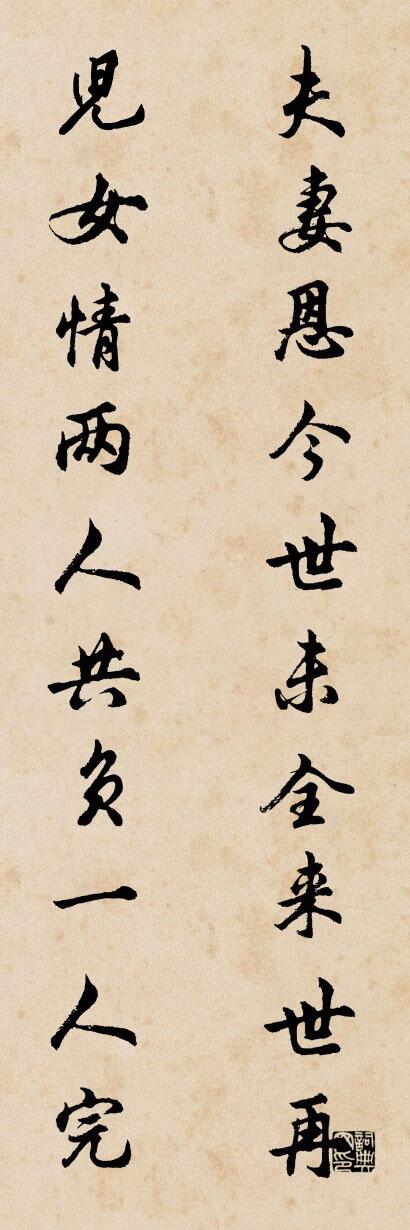 夫妻恩今世未全来世再
児女情两人共负一人完